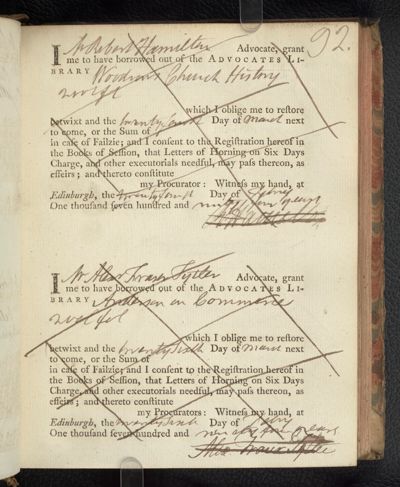 92.
I Mr Robert Hamilton Advocate, grant
me to have borrowed out of the ADVOCATES LI-
BRARY Woodrows Church History
2 vol fol
which I oblige me to reſtore
betwixt and the twenty fourth Day of March next
to come, or the Sum of
in caſe of Failzie; and I conſent to the Regiſtration hereof in
the Books of Seſſion, that Letters of Horning on Six Days
Charge, and other executorials needful, may paſs thereon, as
effeirs; and thereto conſtitute
my Procurator: Witneſs my hand, at
Edinburgh, the twenty fourth Day of
One thouſand ſeven hundred and ninety four years
I Mr Alexr Fraser Tytler Advocate, grant
me to have borrowed out of the ADVOCATES LI-
BRARY Anderson on Commerce
2 vol fol
which I oblige me to reſtore
betwixt and the twenty sixth Day of March next
to come, or the Sum of
in caſe of Failzie; and I conſent to the Regiſtration hereof in
the Books of Seſſion, that Letters of Horning on Six Days
Charge, and other executorials needful, may paſs thereon, as
effeirs; and thereto conſtitute
my Procurators: Witneſs my hand, at
Edinburgh, the twenty sixth Day of
One thouſand ſeven hundred and ninety four years
Alex Fraser Tytler